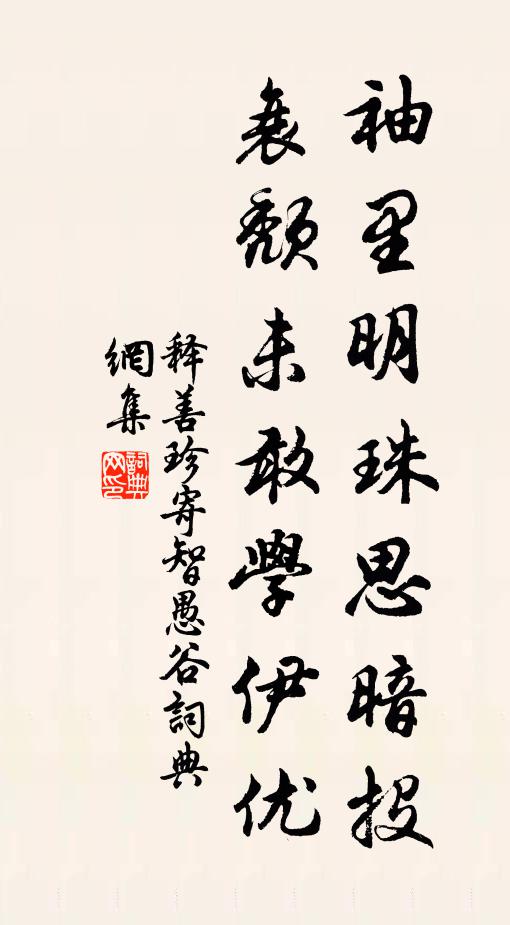 袖里明珠思暗投
衰颓未敢學伊优
释善珍寄智愚谷詞典
網集
詞典網印